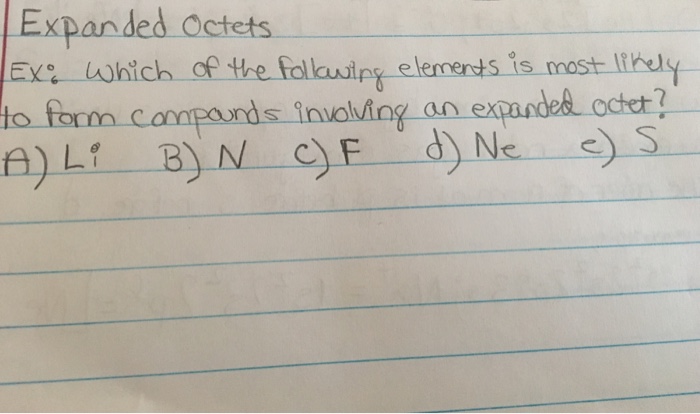 Expanded Octets
Ex: Which of the following elements is most likely
to form compounds involving an expanded octet?
A) Li B) N C) F d) Ne e) S